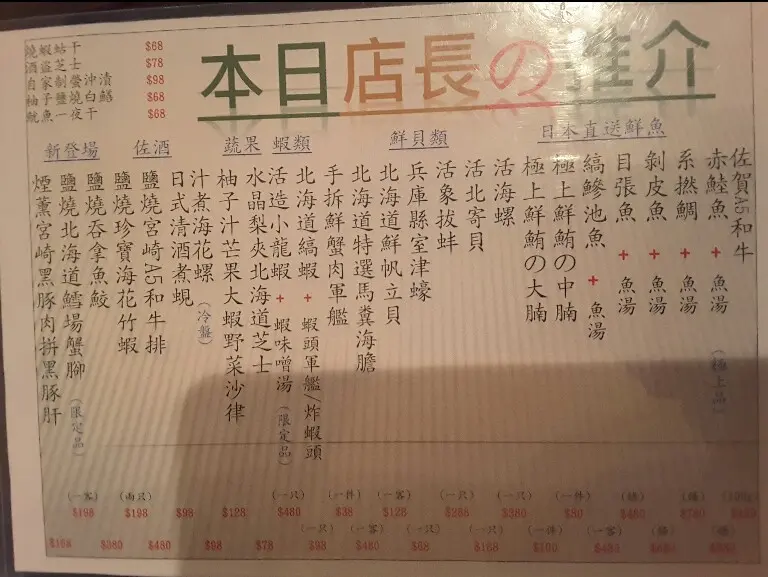 本日店長の推介
燒蝦蛄干 $68
酒盜芝士 $78
自家制螢沖漬 $98
柚子鹽燒白鱔 $68
魷魚一夜干 $68
日本直送鮮魚
佐賀A5和牛
赤鯥魚 + 魚湯 (極上品)
系撚鯛 + 魚湯
剝皮魚 + 魚湯
目張魚 + 魚湯
縞鰺池魚 + 魚湯
極上鮮鮪の中腩
極上鮮鮪の大腩
鮮貝類
活海螺
活北寄貝
活象拔蚌
兵庫縣室津蠔
北海道鮮帆立貝
北海道特選馬糞海膽
蝦類
手拆鮮蟹肉軍艦
北海道縞蝦 + 蝦頭軍艦/炸蝦頭
活造小龍蝦 + 蝦味噌湯 (限定品)
蔬果
水晶梨夾北海道芝士
柚子汁芒果大蝦野菜沙律
佐酒
汁煮海花螺 (冷盤)
日式清酒煮蜆
鹽燒宮崎A5和牛排
鹽燒珍寶海花竹蝦
新登場
鹽燒吞拿魚鮫
鹽燒北海道鱈場蟹腳 (限定品)
煙薰宮崎黑豚肉拼黑豚肝
(一客) (兩只) (一只) (一件) (一客) (一只) (一只) (一件) (條) (條) (100g)
$198 $198 $98 $128 $480 $38 $128 $288 $380 $80 $480 $780
(一只) (一客) (一只) (一件) (一客) (條) (條)
$380 $480 $98 $78 $98 $480 $68 $168 $100